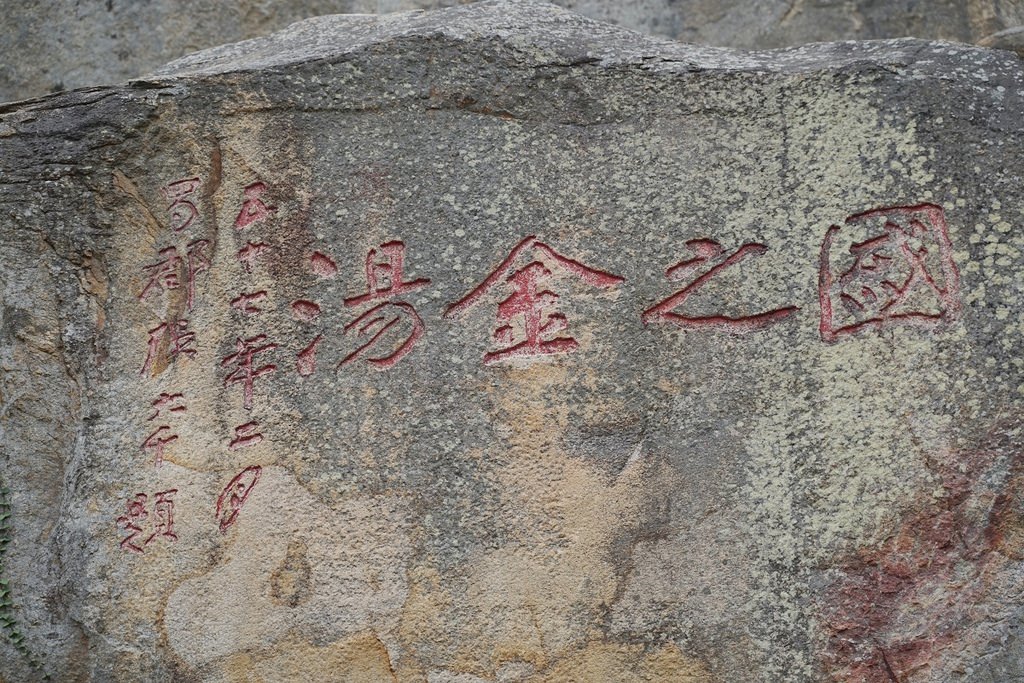 國之金湯
五十七年二月
蜀郡張大千題